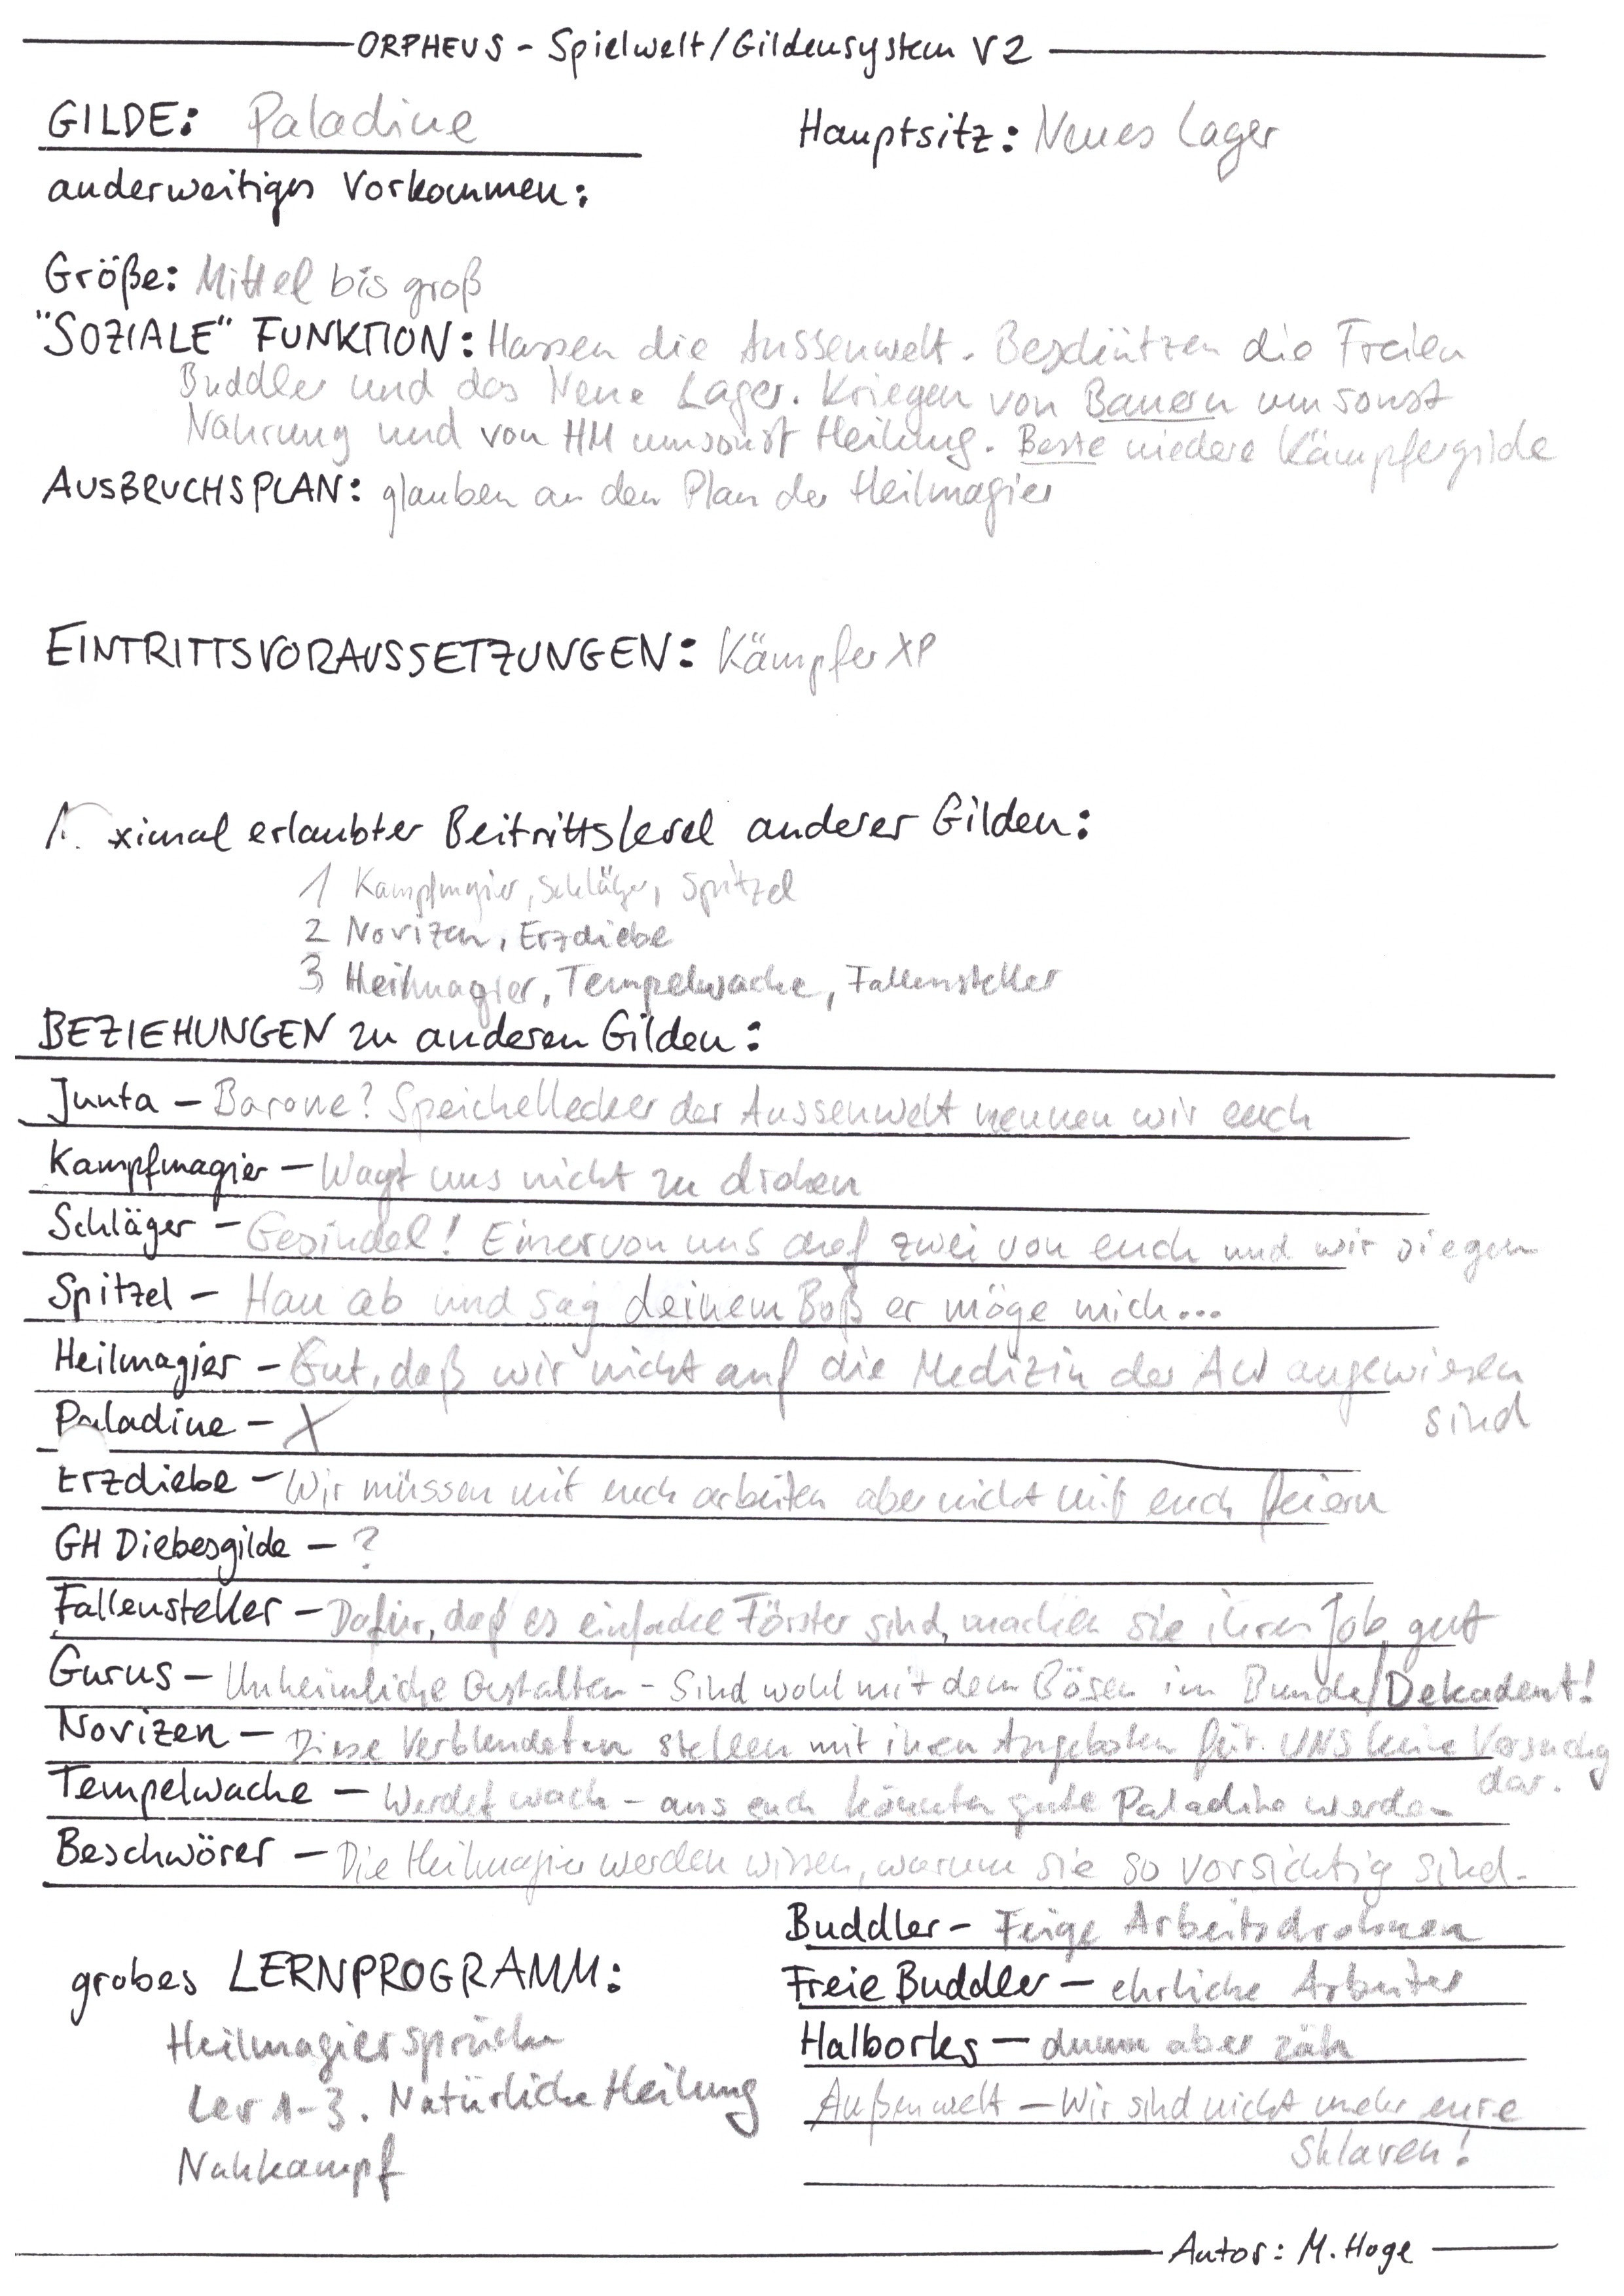 ORPHEUS - Spielwelt/Gildensystem V2
GILDE: Paladine Hauptsitz: Neues Lager
anderweitiges Vorkommen:
Größe: Mittel bis groß
"SOZIALE" FUNKTION: Hassen die Aussenwelt. Beschützen die Freien
Buddler und das Neue Lager. Kriegen von Bauern umsonst
Nahrung und von HM umsonst Heilung. Beste niedere Kämpfergilde
AUSBRUCHSPLAN: glauben an den Plan der Heilmagier
EINTRITTSVORAUSSETZUNGEN: Kämpfer XP
ximal erlaubter Beitrittslevel anderer Gilden:
1 Kampfmagier, Schläger, Spitzel
2 Novizen, Erzdiebe
3 Heilmagier, Tempelwache, Fallensteller
BEZIEHUNGEN zu anderen Gilden:
Junta - Barone? Speichellecker der Aussenwelt nennen wir euch
Kampfmagier - Wagt uns nicht zu drohen
Schläger - Gesindel! Einer von uns auf zwei von euch und wir siegen
Spitzel - Hau ab und sag deinem Boß er möge mich...
Heilmagier - Gut, daß wir nicht auf die Medizin der AW angewiesen
sind
Paladine - X
Erzdiebe - Wir müssen mit euch arbeiten aber nicht mit euch feiern
GH Diebesgilde - ?
Fallensteller - Dafür, daß es einfache Förster sind, machen sie ihren Job gut
Gurus - Unheimliche Gestalten - Sind wohl mit dem Bösen im Bunde/Dekadent!
Novizen - Diese Verblendeten stellen mit ihren Angeboten für UNS keine Versuchg
dar.
Tempelwache - Werdet wach - aus euch könnten gute Paladine werden
Beschwörer - Die Heilmagier werden wissen, warum sie so vorsichtig sind.
Buddler - Feige Arbeitsdrohnen
Freie Buddler - ehrliche Arbeiter
Halborks - dumm aber zäh
Außenwelt - Wir sind nicht mehr eure
Sklaven!
grobes LERNPROGRAMM:
Heilmagiersprüche
Lev 1-3. Natürliche Heilung
Nahkampf
Autor: M. Hoge